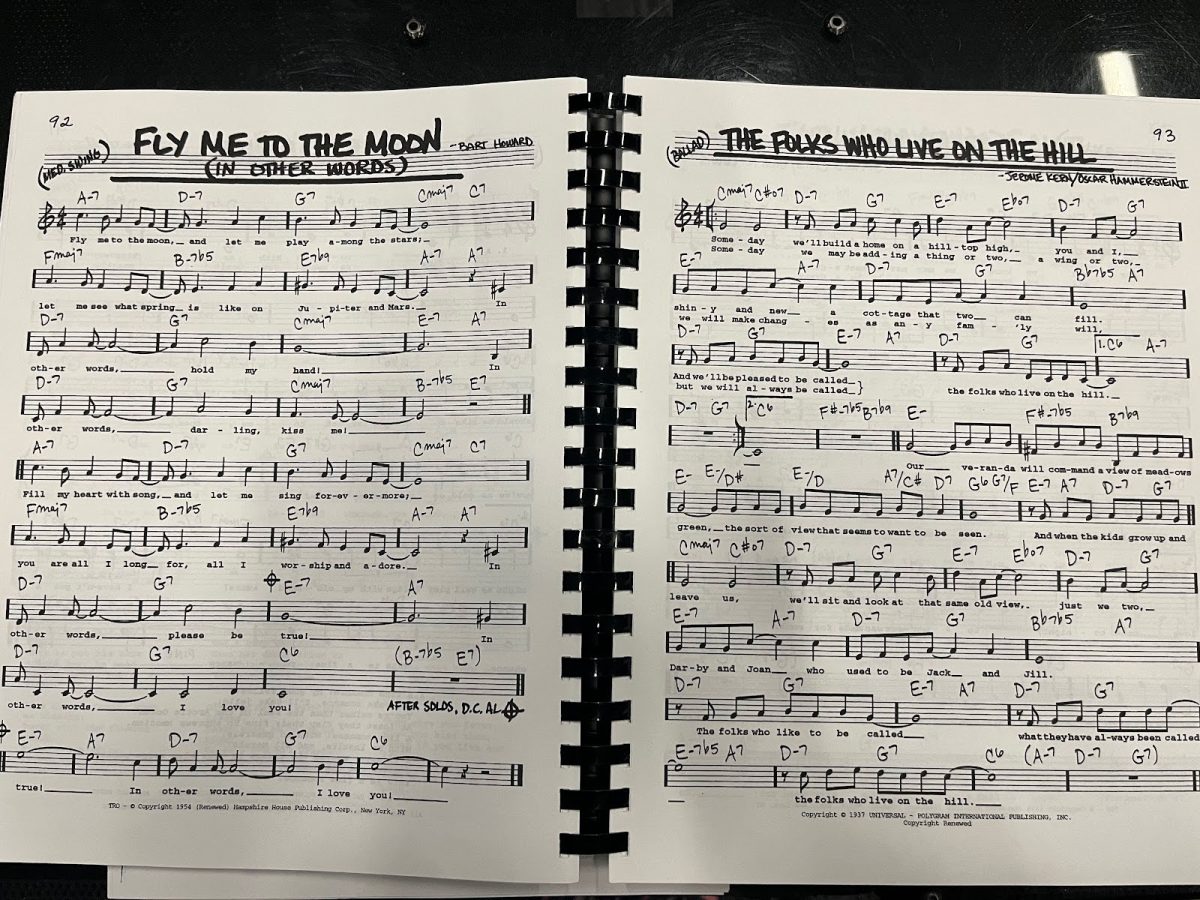 92
FLY ME TO THE MOON
(IN OTHER WORDS)
- BART HOWARD
(MED. SWING)
A-7 D-7 G7 Cmaj7 C7
Fly me to the moon,_ and let me play a-mong the stars;_
Fmaj7 B-7b5 E7b9 A-7 A7
let me see what spring_ is like on Ju - pi-ter and Mars._ In
D-7 G7 Cmaj7 E-7 A7
oth-er words,_ hold my hand!_ In
D-7 G7 Cmaj7 B-7b5 E7
oth-er words,_ dar - ling, kiss me!_
A-7 D-7 G7 Cmaj7 C7
Fill my heart with song,_ and let me sing for-ev - er-more;_
Fmaj7 B-7b5 E7b9 A-7 A7
you are all I long_ for, all I wor - ship and a-dore._ In
D-7 G7 E-7 A7
oth-er words,_ please be true!_ In
D-7 G7 C6 (B-7b5 E7)
oth-er words,_ I love you!
AFTER SOLOS, D.C. AL
E-7 A7 D-7 G7 C6
true!_ In oth-er words,_ I love you!_
TRO - © Copyright 1954 (Renewed) Hampshire House Publishing Corp., New York, NY
93
(BALLAD)
THE FOLKS WHO LIVE ON THE HILL
- JEROME KERN/OSCAR HAMMERSTEIN II
Cmaj7 C#o7 D-7 G7 E-7 Ebo7 D-7 G7
Some - day we'll build a home on a hill-top high,_ you and I,_
Some - day we may be add-ing a thing or two,_ a wing or two,_
E-7 A-7 D-7 G7 Bb7b5 A7
shin - y and new_ a cot-tage that two_ can fill.
we will make chang - es as an-y fam - 'ly will,
D-7 G7 E-7 A7 D-7 G7 1. C6 A-7
And we'll be pleased to be called_
but we will al-ways be called_} the folks who live on the hill._
D-7 G7 2. C6 F#-7b5 B7b9 E- F#-7b5 B7b9
Our_ ve-ran-da will com-mand a view of mead-ows
E- E-/D# E-/D A7/C# D7 G6 G7/F E-7 A7 D-7 G7
green,_ the sort of view that seems to want to be seen. And when the kids grow up and
Cmaj7 C#o7 D-7 G7 E-7 Ebo7 D-7 G7
leave us, we'll sit and look at that same old view,_ just we two,_
E-7 A-7 D-7 G7 Bb7b5 A7
Dar-by and Joan_ who used to be Jack_ and Jill.
D-7 G7 E-7 A7 D-7 G7
The folks who like to be called_ what they have al-ways been called
E-7b5 A7 D-7 G7 C6 (A-7 D-7 G7)
_ the folks who live on the hill._
Copyright © 1937 UNIVERSAL - POLYGRAM INTERNATIONAL PUBLISHING, INC.
Copyright Renewed